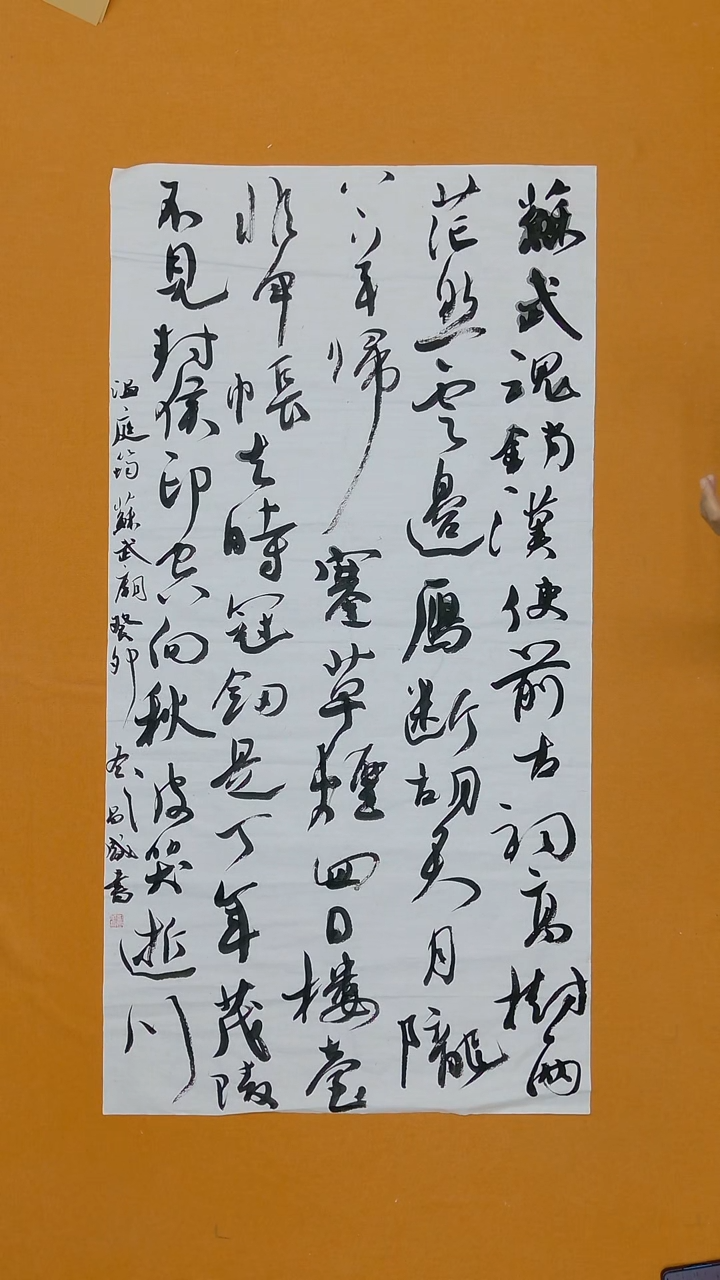 蘇武魂銷漢使前古祠高樹兩
茫然雲邊鴈斷胡天月隴
上羊歸塞草煙回日樓臺
非甲帳去時冠劍是丁年茂陵
不見封侯印空向秋波哭逝川
溫庭筠蘇武廟癸卯冬書